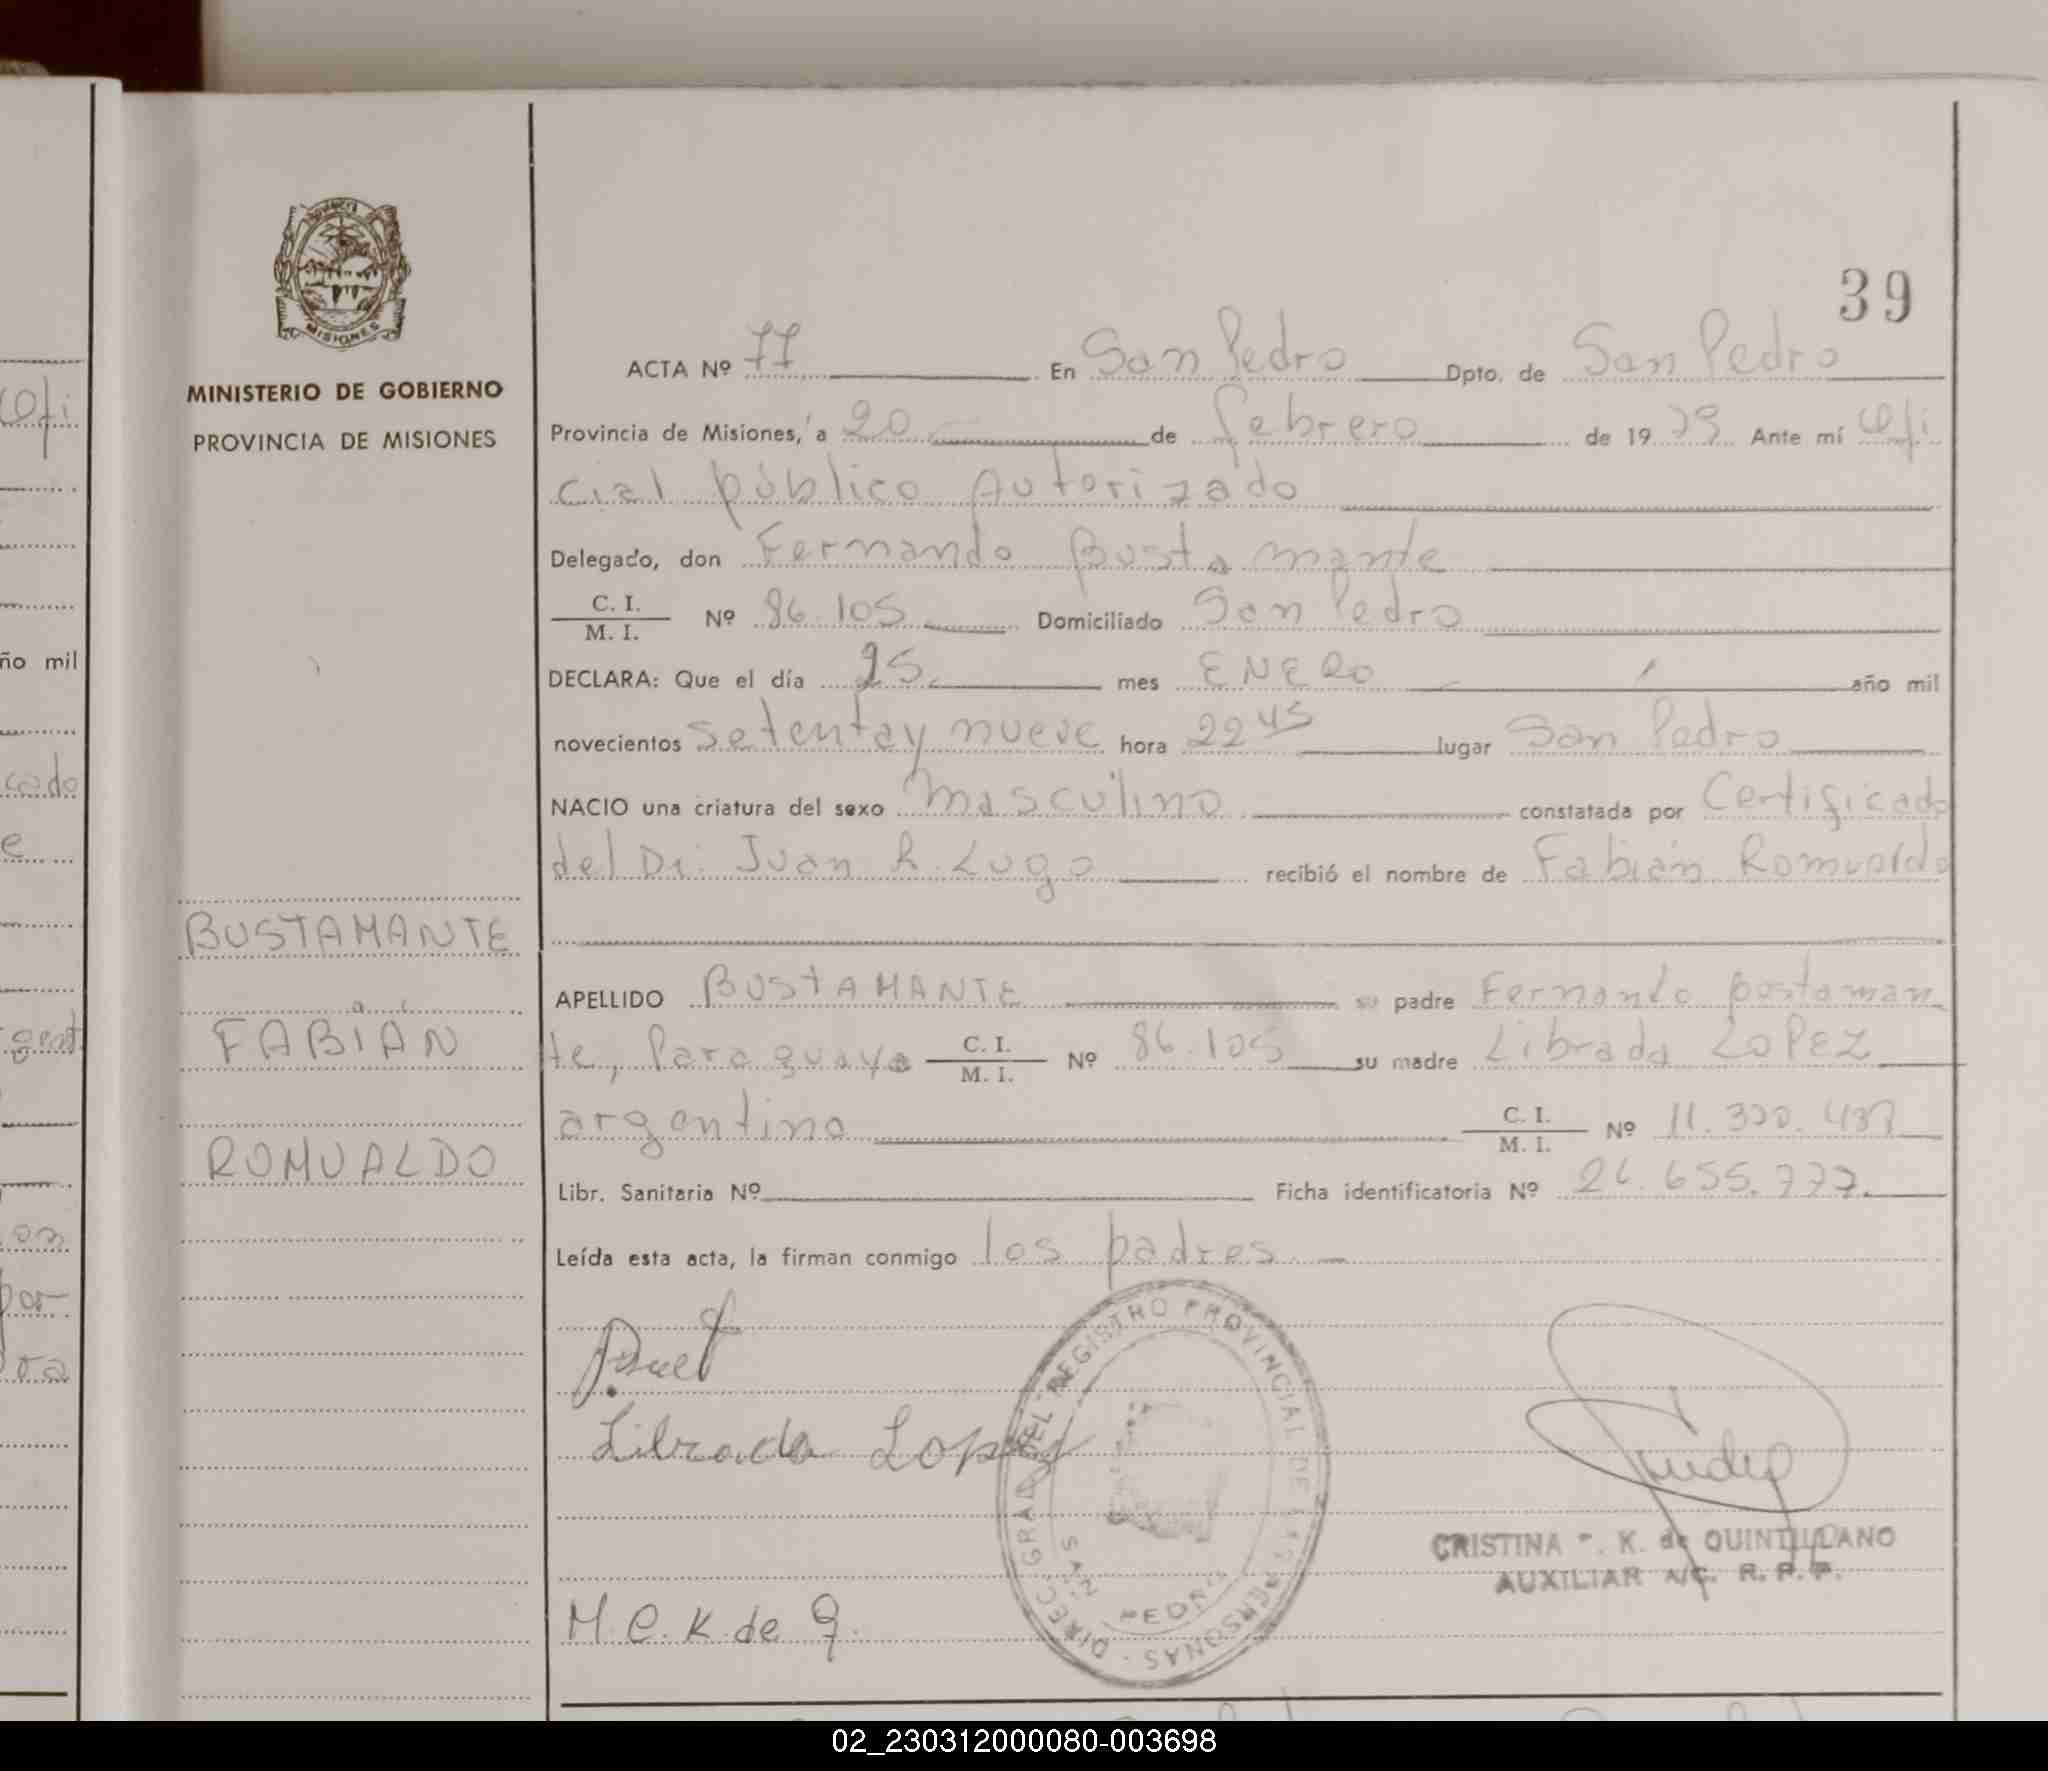 39
MISIONES
MINISTERIO DE GOBIERNO
PROVINCIA DE MISIONES
BUSTAMANTE
FABIÁN
ROMUALDO
ACTA Nº 77 En San Pedro Dpto. de San Pedro
Provincia de Misiones, a 20 de Febrero de 19 79 Ante mí Ofi
cial público Autorizado
Delegado, don Fernando Bustamante
C. I.
M. I. Nº 86.105 Domiciliado San Pedro
DECLARA: Que el día 25 mes ENERO año mil
novecientos setentay nueve hora 22 45 lugar San Pedro
NACIO una criatura del sexo masculino constatada por Certificado
del Dr. Juan R. Lugo recibió el nombre de Fabián Romualdo
APELLIDO BUSTAMANTE su padre Fernando bustaman
te, Paraguaya C. I.
M. I. Nº 86.105 su madre Librada LOPEZ
argentina C. I.
M. I. Nº 11.320.437
Libr. Sanitaria Nº Ficha identificatoria Nº 26.655.777
Leída esta acta, la firman conmigo los padres
Librada Lopez
DIREC. GRAL. DEL REGISTRO PROVINCIAL DE LAS PERSONAS
SAN PEDRO
CRISTINA K. de QUINTILLANO
AUXILIAR A/C. R. P. P.
M.C.K de Q.
ño mil
02_230312000080-003698